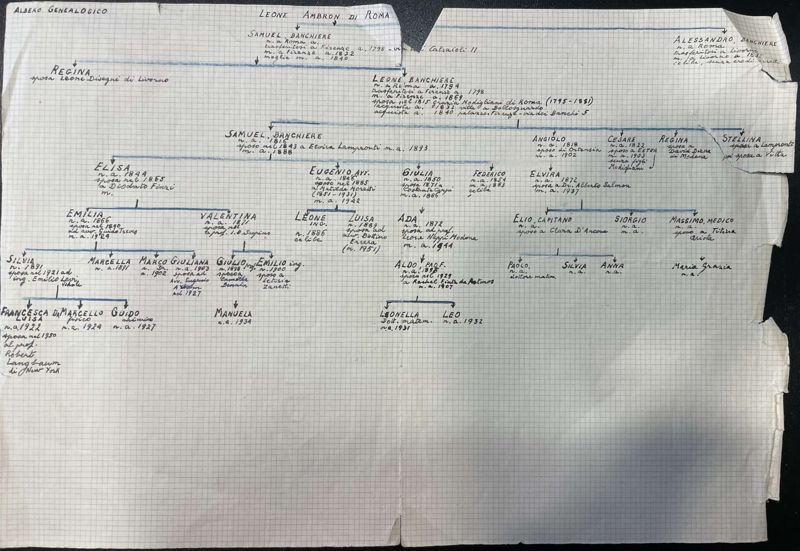 ALBERO GENEALOGICO
LEONE AMBRON DI ROMA
SAMUEL, BANCHIERE
n. a Roma a.
trasferitosi a Firenze a. 1798 - Calzaioli 11
m. a Firenze a. 1832
moglie m. a. 1840
ALESSANDRO, BANCHIERE
n. a Roma
trasferitosi a Livorno
m. a Livorno a.
celibe, senza eredi
REGINA
sposa Leone Disegni di Livorno
LEONE BANCHIERE
n. a Roma a. 1794
trasferitosi a Firenze a. 1798
m. a Firenze a. 1869
sposa nel 1815 Grazia Modigliani di Roma (1795-1881)
acquista a. 1832 villa a Bellosguardo
acquista a. 1840 palazzo Firenze - via dei Banchi 5
SAMUEL, BANCHIERE
n. a. 1816
sposo nel 1843 a Etvira Lampronti m. a. 1893
m. a. 1888
ANGIOLO
n. a. 1818
sposo di Ortensia
m. a. 1902
CESARE
n. a. 1822
sposo a Ester
m. a. 1902
senza figli
REGINA
sposa a
David Diena
di Modena
STELLINA
sposa a Lampronti
poi sposa a Vitta
ELISA
n. a. 1844
sposa nel 1865
a Diodato Finzi
m.
EUGENIO AVV.
n. a.
sposo nel 1882
a Matilde
(1861-1931)
m. a. 1942
GIULIA
n. a. 1850
sposa 1871 a
m. a. 1886
FEDERICO
n. a. 1854
m. a. 1882
celibe
ELVIRA
n. a. 1872
sposa a Dr. Alberto Salmon
m. a. 1937
EMILIA
n. a. 1866
sposa nel 1890
ad avv. Guido Treves
m. a. 1924
VALENTINA
n. a. 1871
sposa nel
a prof. I. B. Supino
LEONE
ING.
n. 1886
celibe
LUISA
n. 1889
sposa ad
avv. Bettino
Errera
(m. 1951)
ADA
n. a. 1872
sposa ad prof.
m. a. 1944
ELIO, CAPITANO
n. a.
sposo a Clara D'Ancona
GIORGIO
n. a.
MASSIMO, MEDICO
n. a.
sposo a Tullia
Ariola
SILVIA
n. 1891
sposa nel 1921 ad
ing. Emilio Levi
MARCELLA
n. a. 1891
MARCO
n. a. 1902
GIULIANA
n. a. 1902
sposa ad
avv. Eugenio
nel 1927
GIULIO ing.
n. 1898
sposo a
EMILIO ing.
n. 1900
sposo a
Letizia
Zanetti
ALDO PROF.
n. a.
sposo nel 1929
a Rachel
n. a. 1907
PAOLO,
n. a.
dottore matem.
SILVIA
n. a.
ANNA
n. a.
MARIA GRAZIA
n. a.
FRANCESCA
LUISA
n. a. 1922
sposa nel 1950
al prof.
Robert
Langbaum
di New York
MARCELLO
fisico
n. a. 1924
GUIDO
chimico
n. a. 1927
MANUELA
n. a. 1934
LIONELLA
dott. matem.
n. a. 1931
LEO
n. a. 1932